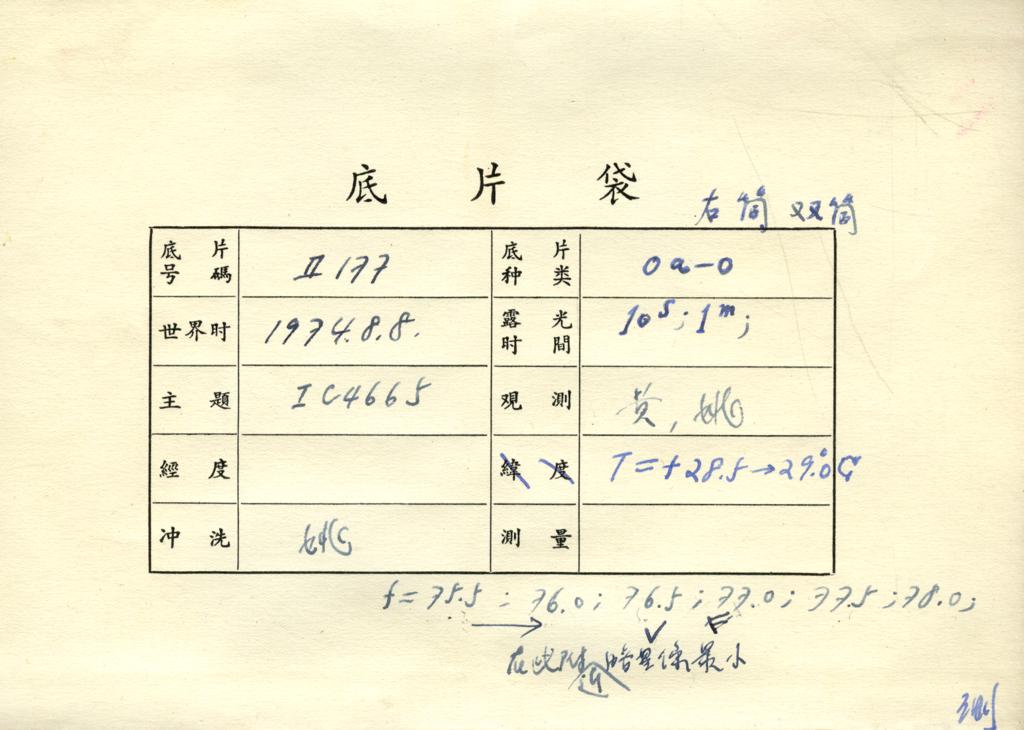 底 片 袋
右筒 双筒
底片号碼 II 177 底片种类 0a-0
世界时 1974.8.8. 露光时間 10ˢ; 1ᵐ;
主題 IC4665 观測 黄, 姚
經度 緯度 T=+28.5→29.0°C
冲洗 姚 測量
f=75.5 ; 76.0; 76.5; 77.0; 77.5; 78.0;
在此附近暗星像最小
测